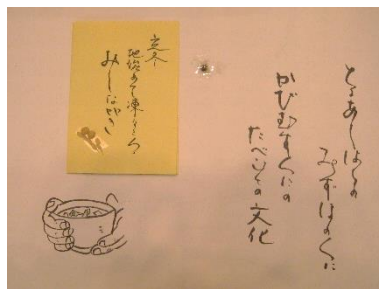 とよあしはらの
みずほのくに
かびむすくにの
たべものの文化
立冬
地始めて凍る